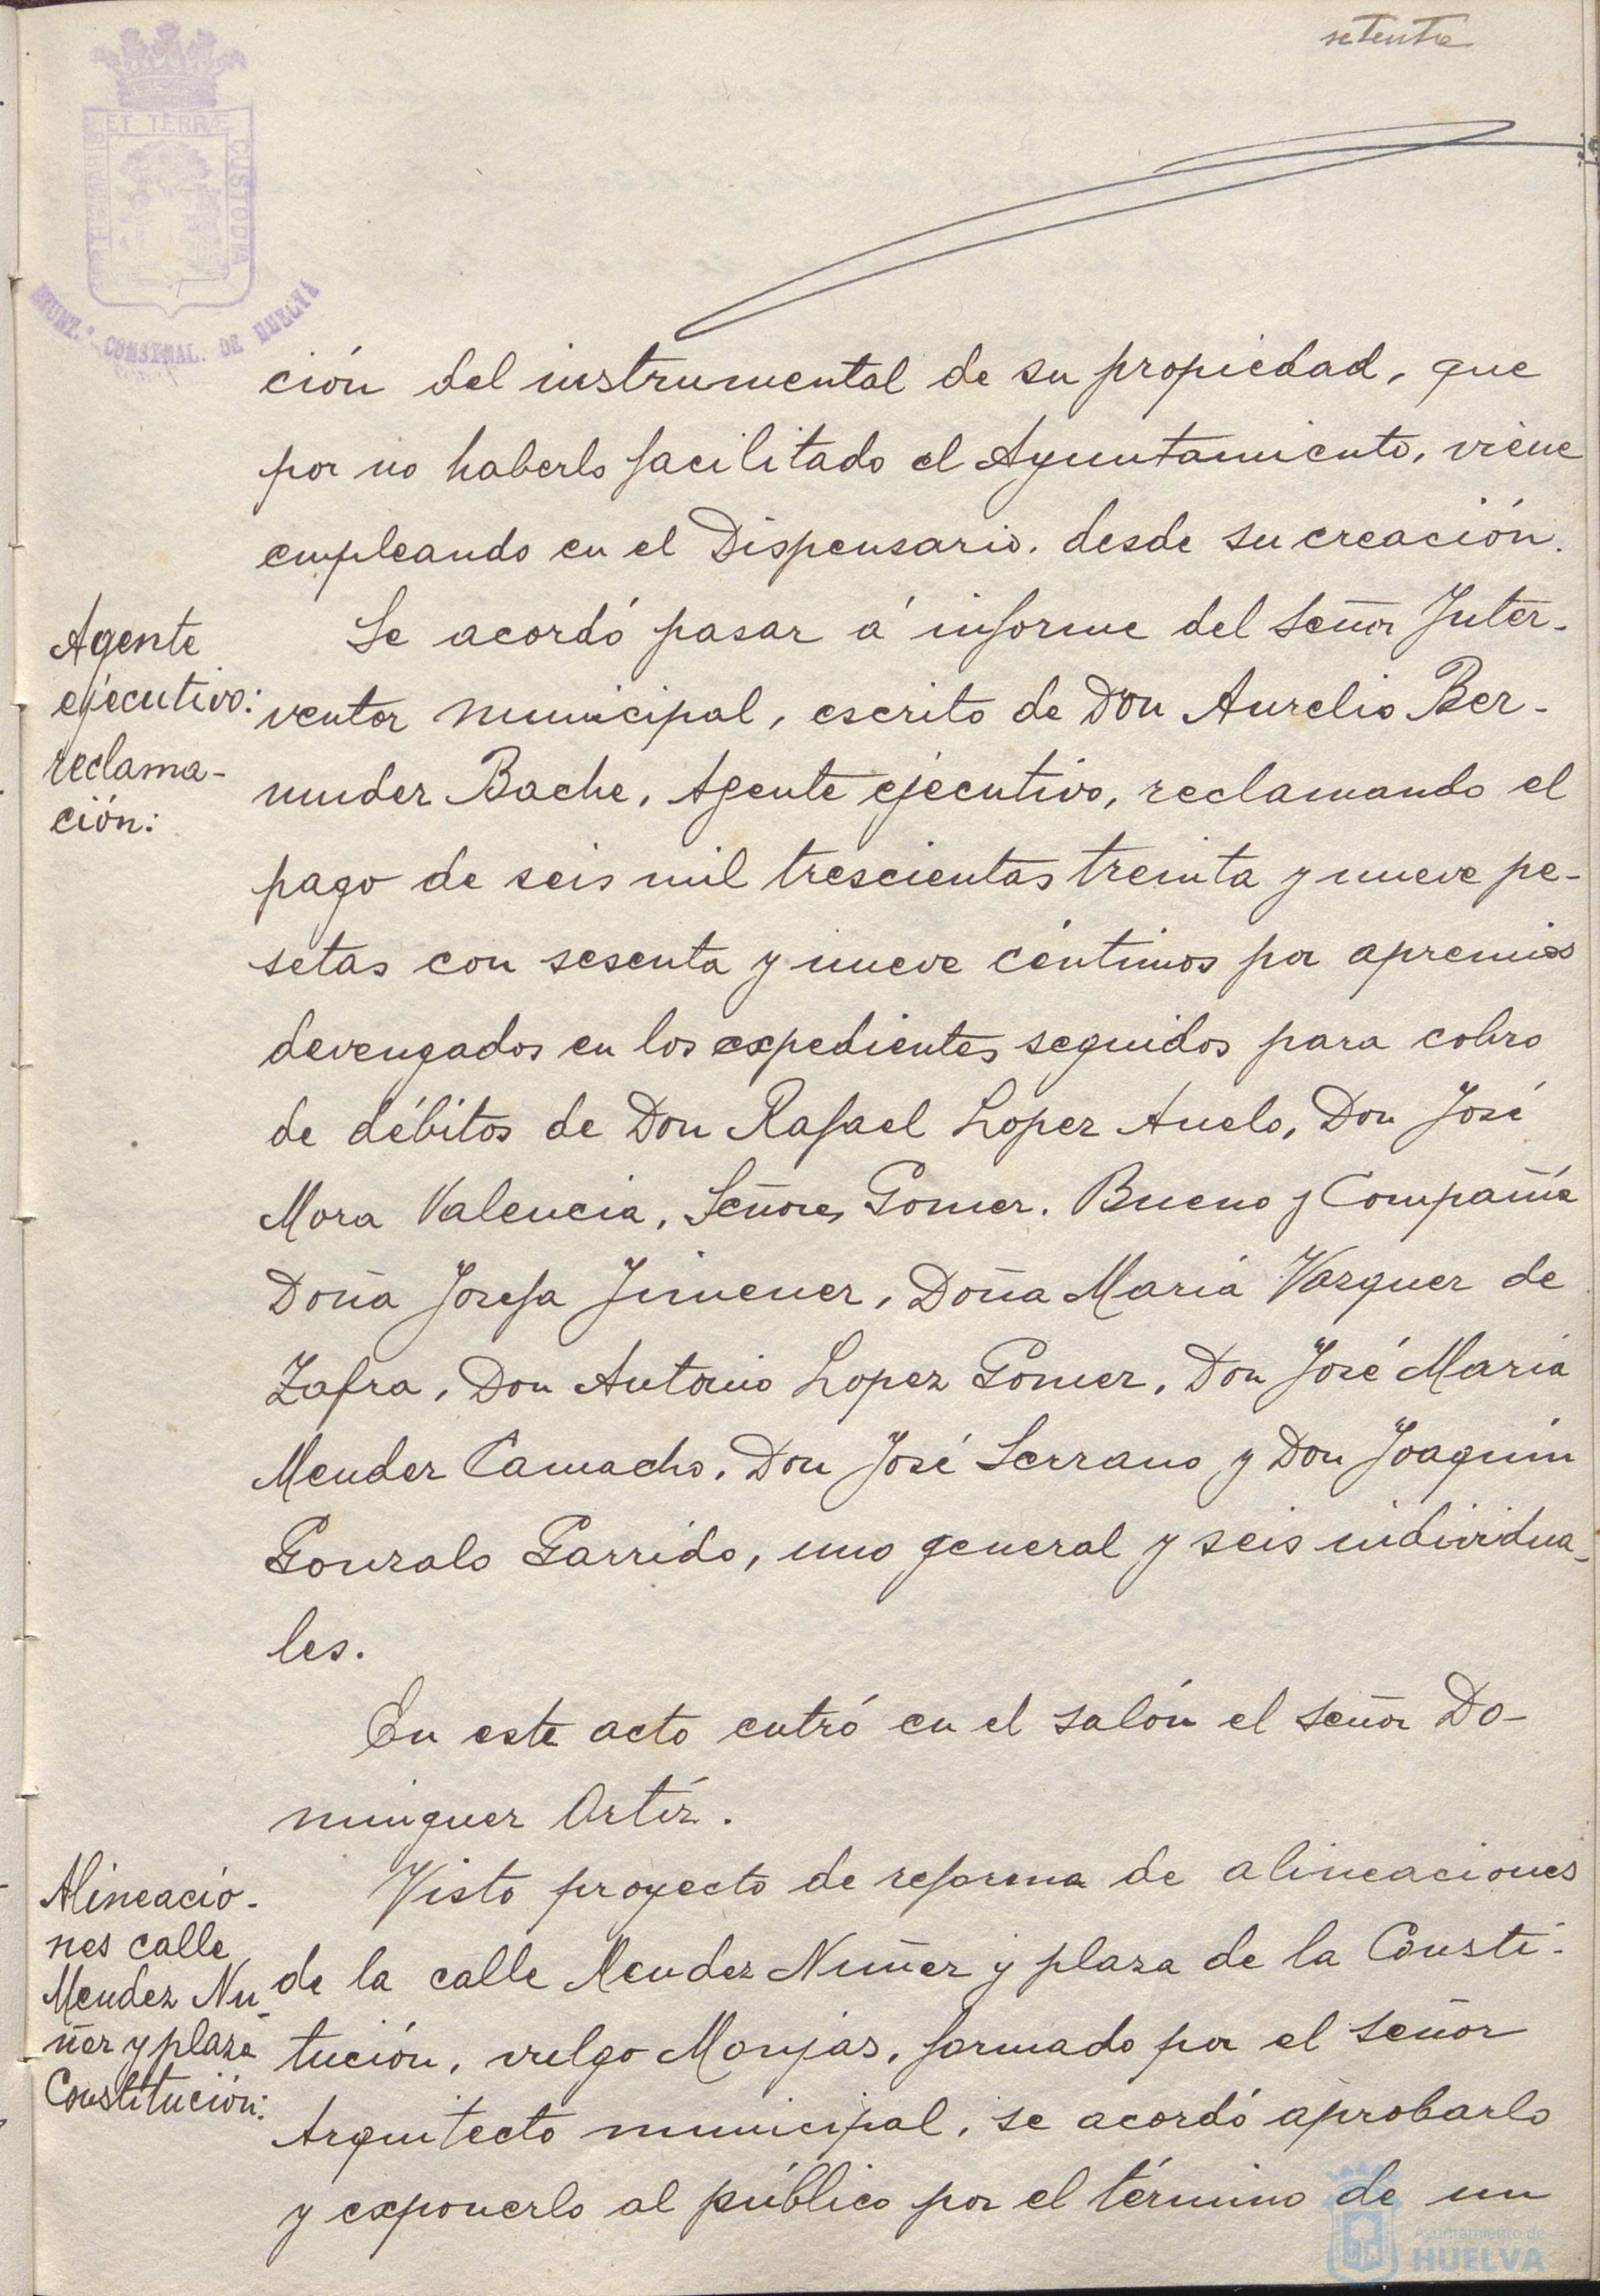 setenta
ET TERRÆ
CUSTODIA
CONSTNAL. DE HUELVA
ción del instrumental de su propiedad, que
por no haberlo facilitado el Ayuntamiento, viene
empleando en el Dispensario, desde su creación.
Agente
ejecutivo:
reclama-
ción:
Se acordó pasar á informe del Señor Inter-
ventor municipal, escrito de Don Aurelio Ber-
mudez Bache, Agente ejecutivo, reclamando el
pago de seis mil trescientas treinta y nueve pe-
setas con sesenta y nueve céntimos por apremios
devengados en los expedientes seguidos para cobro
de débitos de Don Rafael Lopez Anelo, Don José
Mora Valencia, Señores Gomez, Bueno y Compañía
Doña Josefa Jimenez, Doña María Vazquez de
Zafra, Don Antonio Lopez Gomez, Don José María
Mendez Camacho, Don José Serrano y Don Joaquín
Gonzalo Garrido, uno general y seis individua-
les.
En este acto entró en el salón el señor Do-
minguez Ortíz.
Alineacio-
nes calle
Mendez Nu-
ñez y plaza
Constitución:
Visto proyecto de reforma de alineaciones
de la calle Mendez Nuñez y plaza de la Consti-
tución, vulgo Monjas, formado por el señor
Arquitecto municipal, se acordó aprobarlo
y exponerlo al público por el término de un
Ayuntamiento de
HUELVA